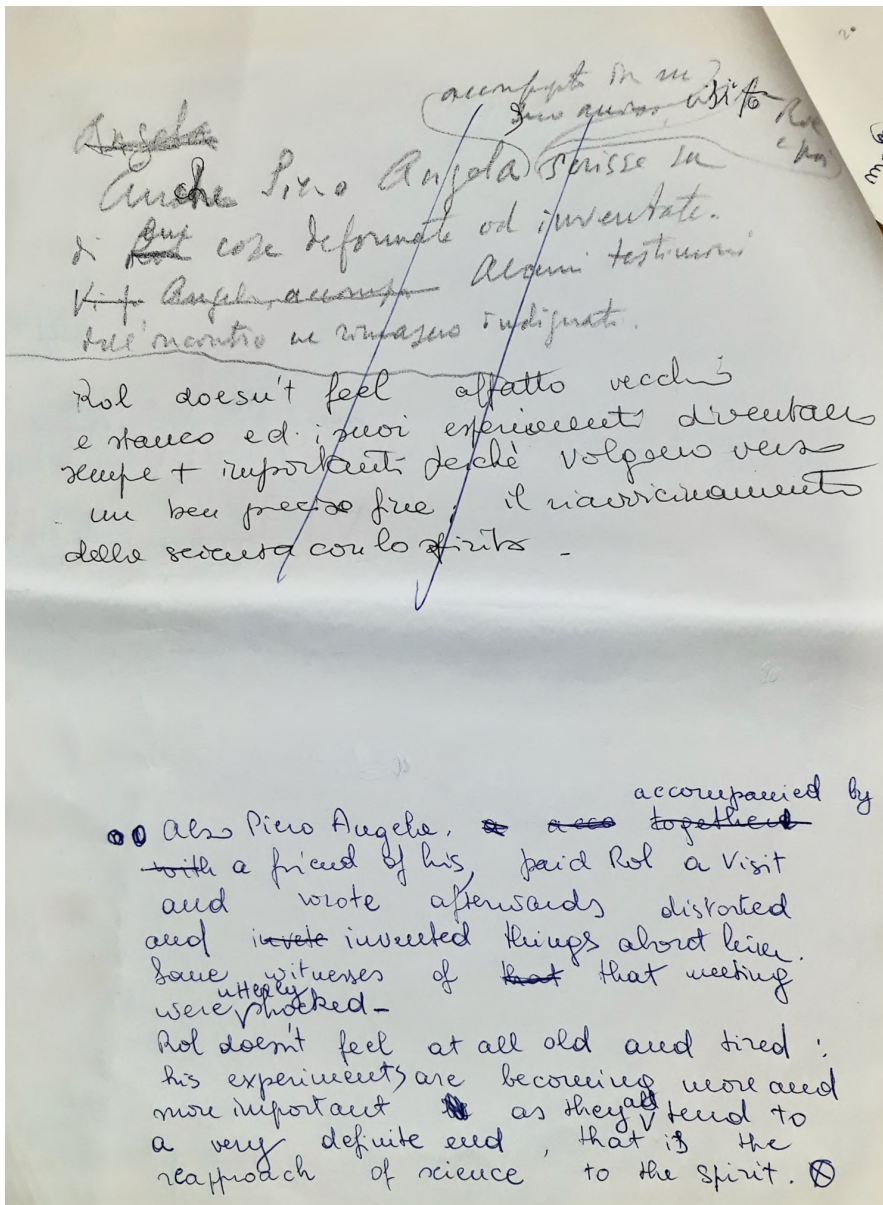 accompagnato in un
suo amico, visitò Rol
e poi
Angela
Anche Piero Angela scrisse su
di Rol lui cose deformate od inventate.
Angela, accomp Alcuni testimoni
dell'incontro ne rimasero indignati.
Rol doesn't feel affatto vecchio
e stanco ed i suoi esperimenti diventano
sempre + importanti perchè volgono verso
un ben preciso fine, il riavvicinamento
della scienza con lo spirito -
accompanied by
Also Piero Angela, a acco together
with a friend of his, paid Rol a visit
and wrote afterwards distorted
and invete invented things about him.
Some witnesses of that that meeting
were utterly shocked -
Rol doesn't feel at all old and tired:
his experiments are becoming more and
more important as they all tend to
a very definite end, that is the
reapproach of science to the spirit.